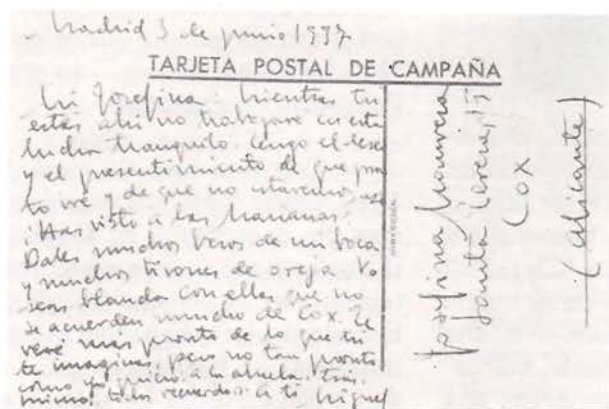 Madrid 3 de junio 1937
TARJETA POSTAL DE CAMPAÑA
Mi Josefina: Mientras tú
estás ahí no trabajaré en esta
lucha tranquilo. Tengo el deseo
y el presentimiento de que pron
to iré y de que no estaremos así
¿Has visto a las hermanas?
Dales muchos besos de mi boca
y muchos tirones de oreja. No
seas blanda con ellas que no
se acuerden mucho de Cox. Te
veré más pronto de lo que tú
te imaginas, pero no tan pronto
como yo quiero. a la abuela, tías,
recuerdos. a ti Miguel
Josefina Manresa
Santa Teresa, 15
Cox
(Alicante)